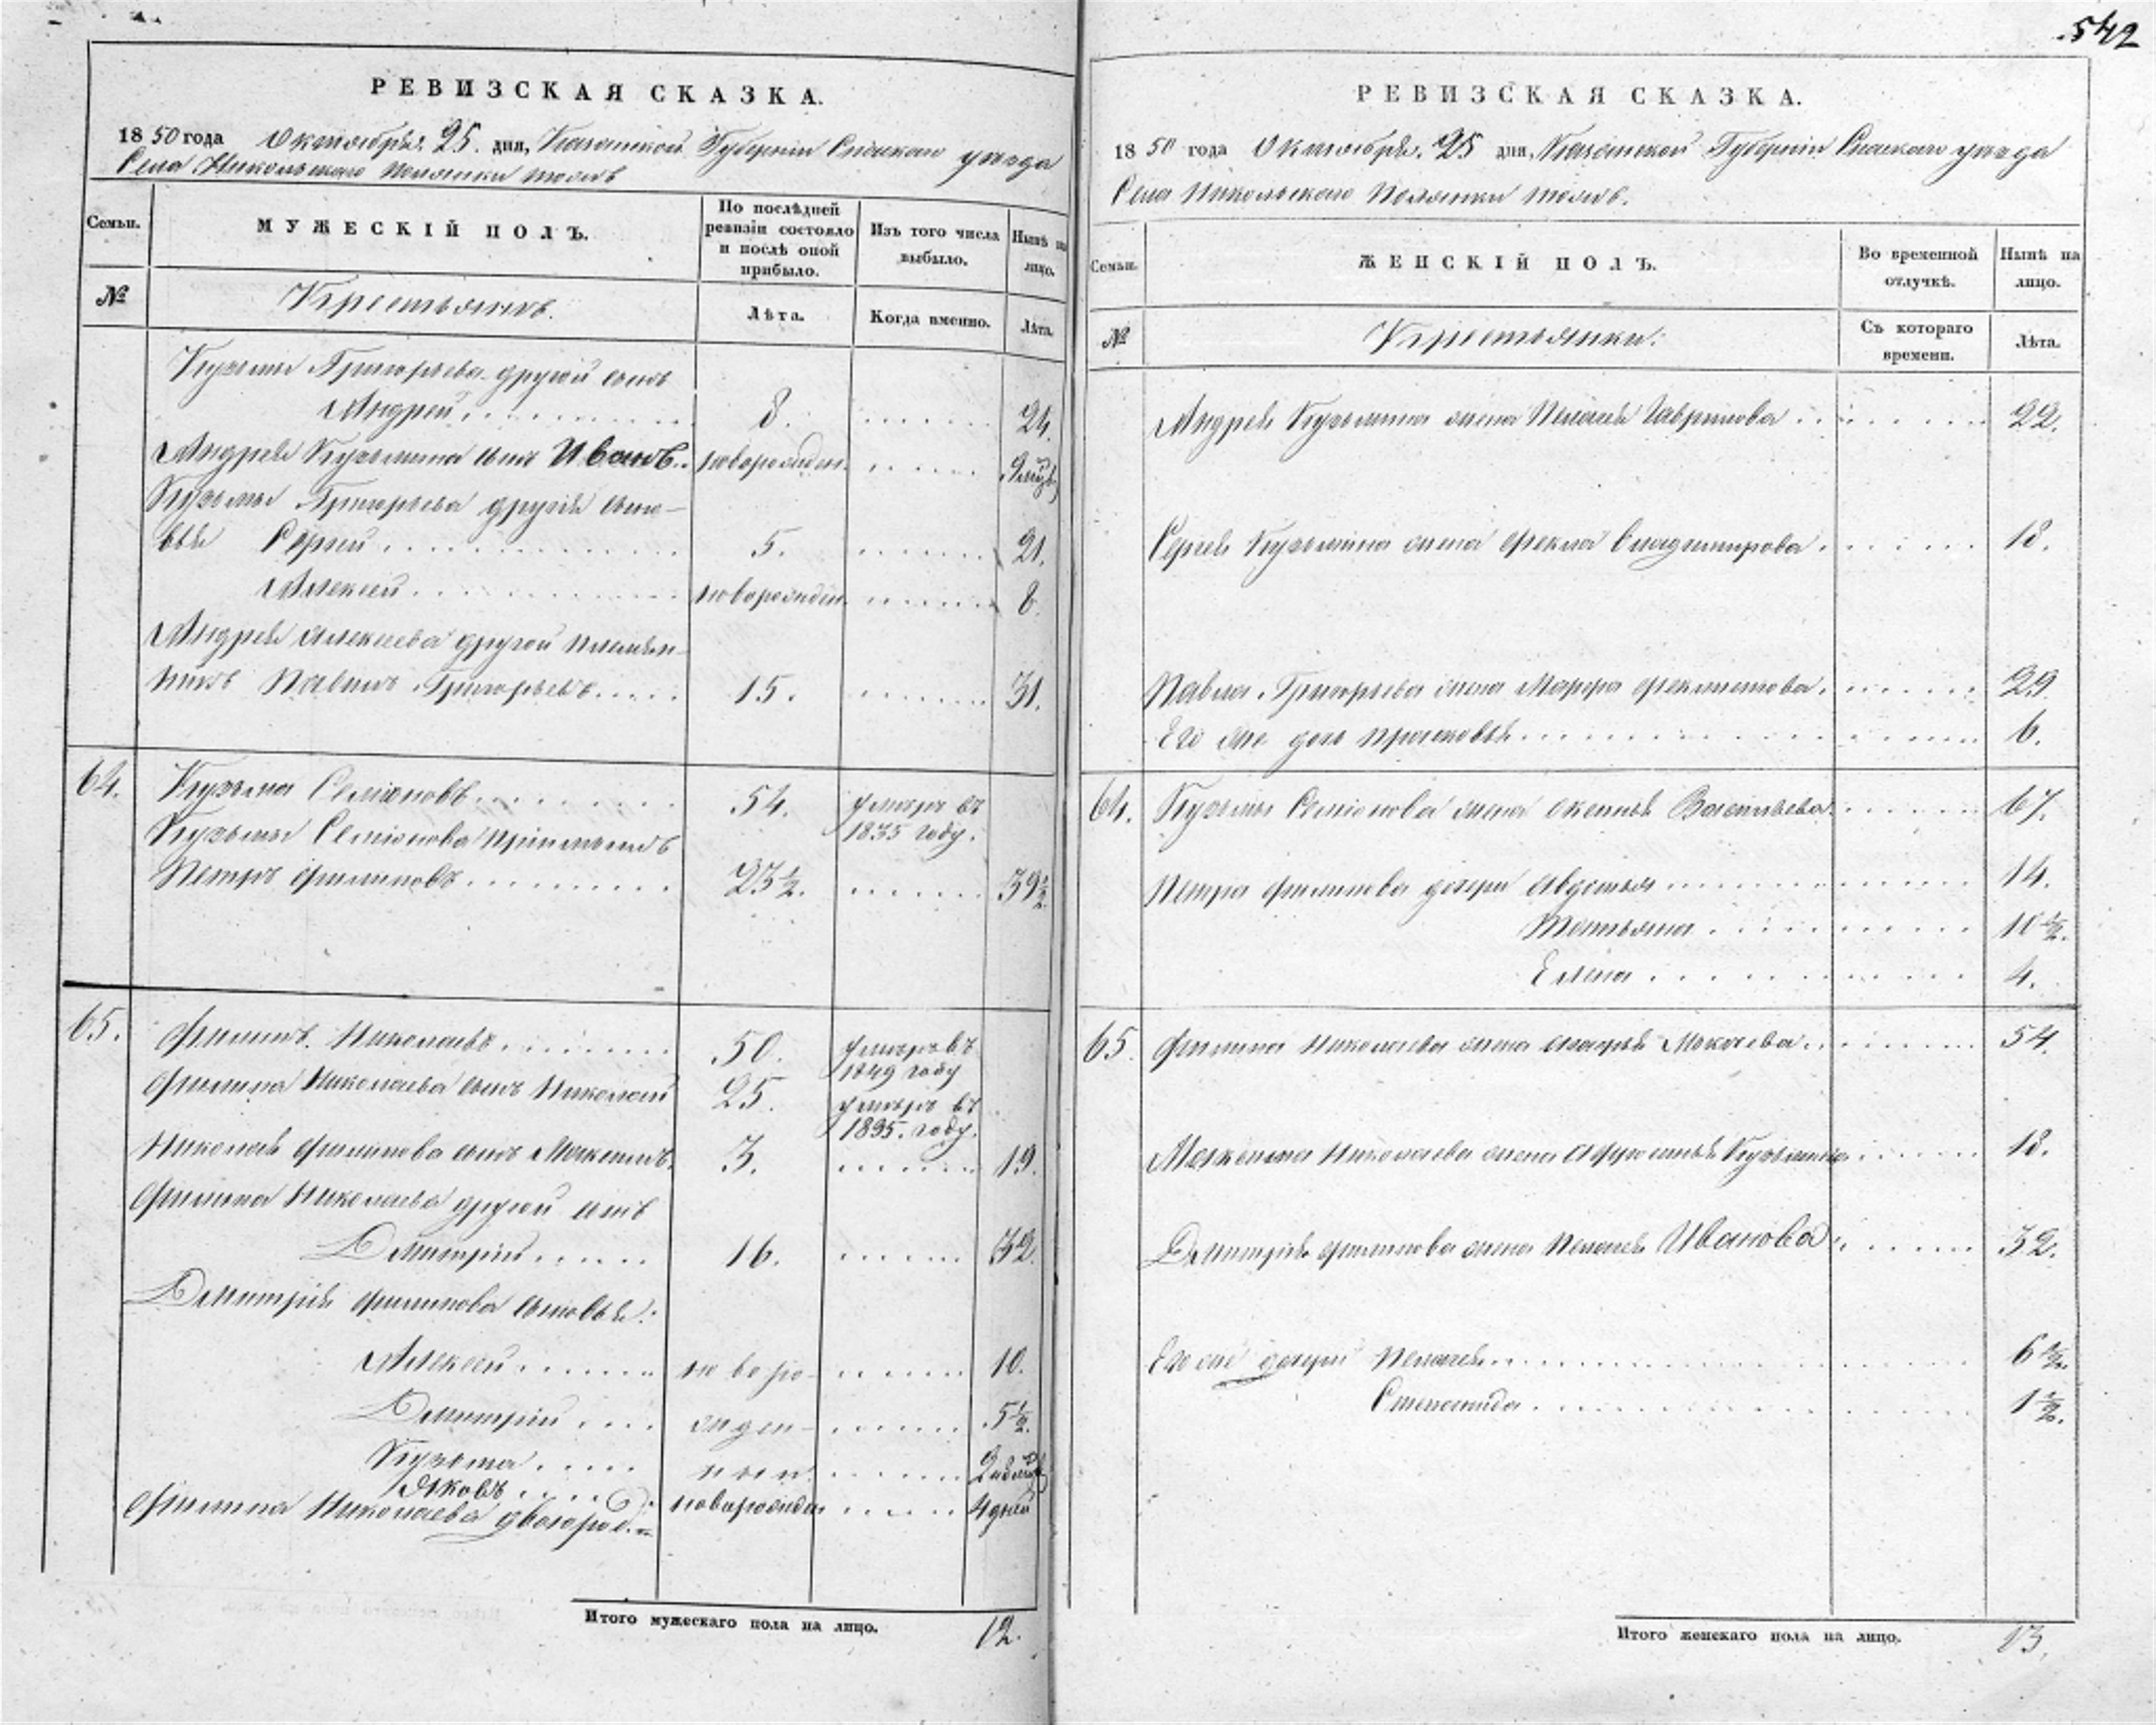 542
РЕВИЗСКАЯ СКАЗКА.
1850 года Октября 25. дня, Казанской Губернии Спаскаго уезда
Села Никольскаго Полянки тожъ
Семьи.
МУЖЕСКІЙ ПОЛЪ.
По послѣдней ревизіи состояло и послѣ оной прибыло.
Изъ того числа выбыло.
Нынѣ на лицо.
№
Крестьянъ.
Лѣта.
Когда именно.
Лѣта.
Кузьмы Григорьева другой сынъ
Андрей 8. 24.
Андрея Кузьмина сынъ Иванъ новорожден.
Кузьмы Григорьева другіе сыно-
вья Сергей 5. 21.
Алексей новорожден. 8.
Андрея Алексеева другой племян-
никъ Павелъ Григорьевъ 15. 31.
64. Кузьма Семіоновъ 54. умеръ въ 1835 году.
Кузьмы Семіонова пріимышъ
Петръ Филиповъ 23½. 39½.
65. Филипъ Николаевъ 50. умеръ въ 1849 году
Филипа Николаева сынъ Николай 25. умеръ въ 1835. году.
Николая Филипова сынъ Максимъ. 3. 19.
Филипа Николаева другой сынъ
Дмитрій 16. 32.
Дмитрія Филипова сыновья:
Алексей новоро- 10.
Дмитрій жден- 5½.
Кузьма ныи.
Яковъ новорожден 4 дней
Филипа Николаева двоюрод.
Итого мужескаго пола на лицо. 12.
РЕВИЗСКАЯ СКАЗКА.
1850 года Октября. 25 дня, Казанской Губерніи Спаскаго уезда
Села Никольскаго Полянки тожъ.
Семьи.
ЖЕНСКІЙ ПОЛЪ.
Во временной отлучкѣ.
Нынѣ на лицо.
№
Крестьянки:
Съ котораго времени.
Лѣта.
Андрея Кузьмина жена Пелагея Гаврилова 22.
Сергея Кузьмина жена Фекла Владимирова 18.
Павла Григорьева жена Марфа Феклистова 29
Его же дочь Прасковья 6.
64. Кузьмы Семіонова жена Аксинья Васильева 67.
Петра Филипова дочери Авдотья 14.
Татьяна 10½.
Елена 4.
65. Филипа Николаева жена Дарья Мокеева 54.
Максима Николаева жена Афросинья Кузьмина 18.
Дмитрія Филипова жена Пелагея Иванова 32.
Его же дочери Пелагея 6½.
Степанида 1½.
Итого женскаго пола на лицо. 13.